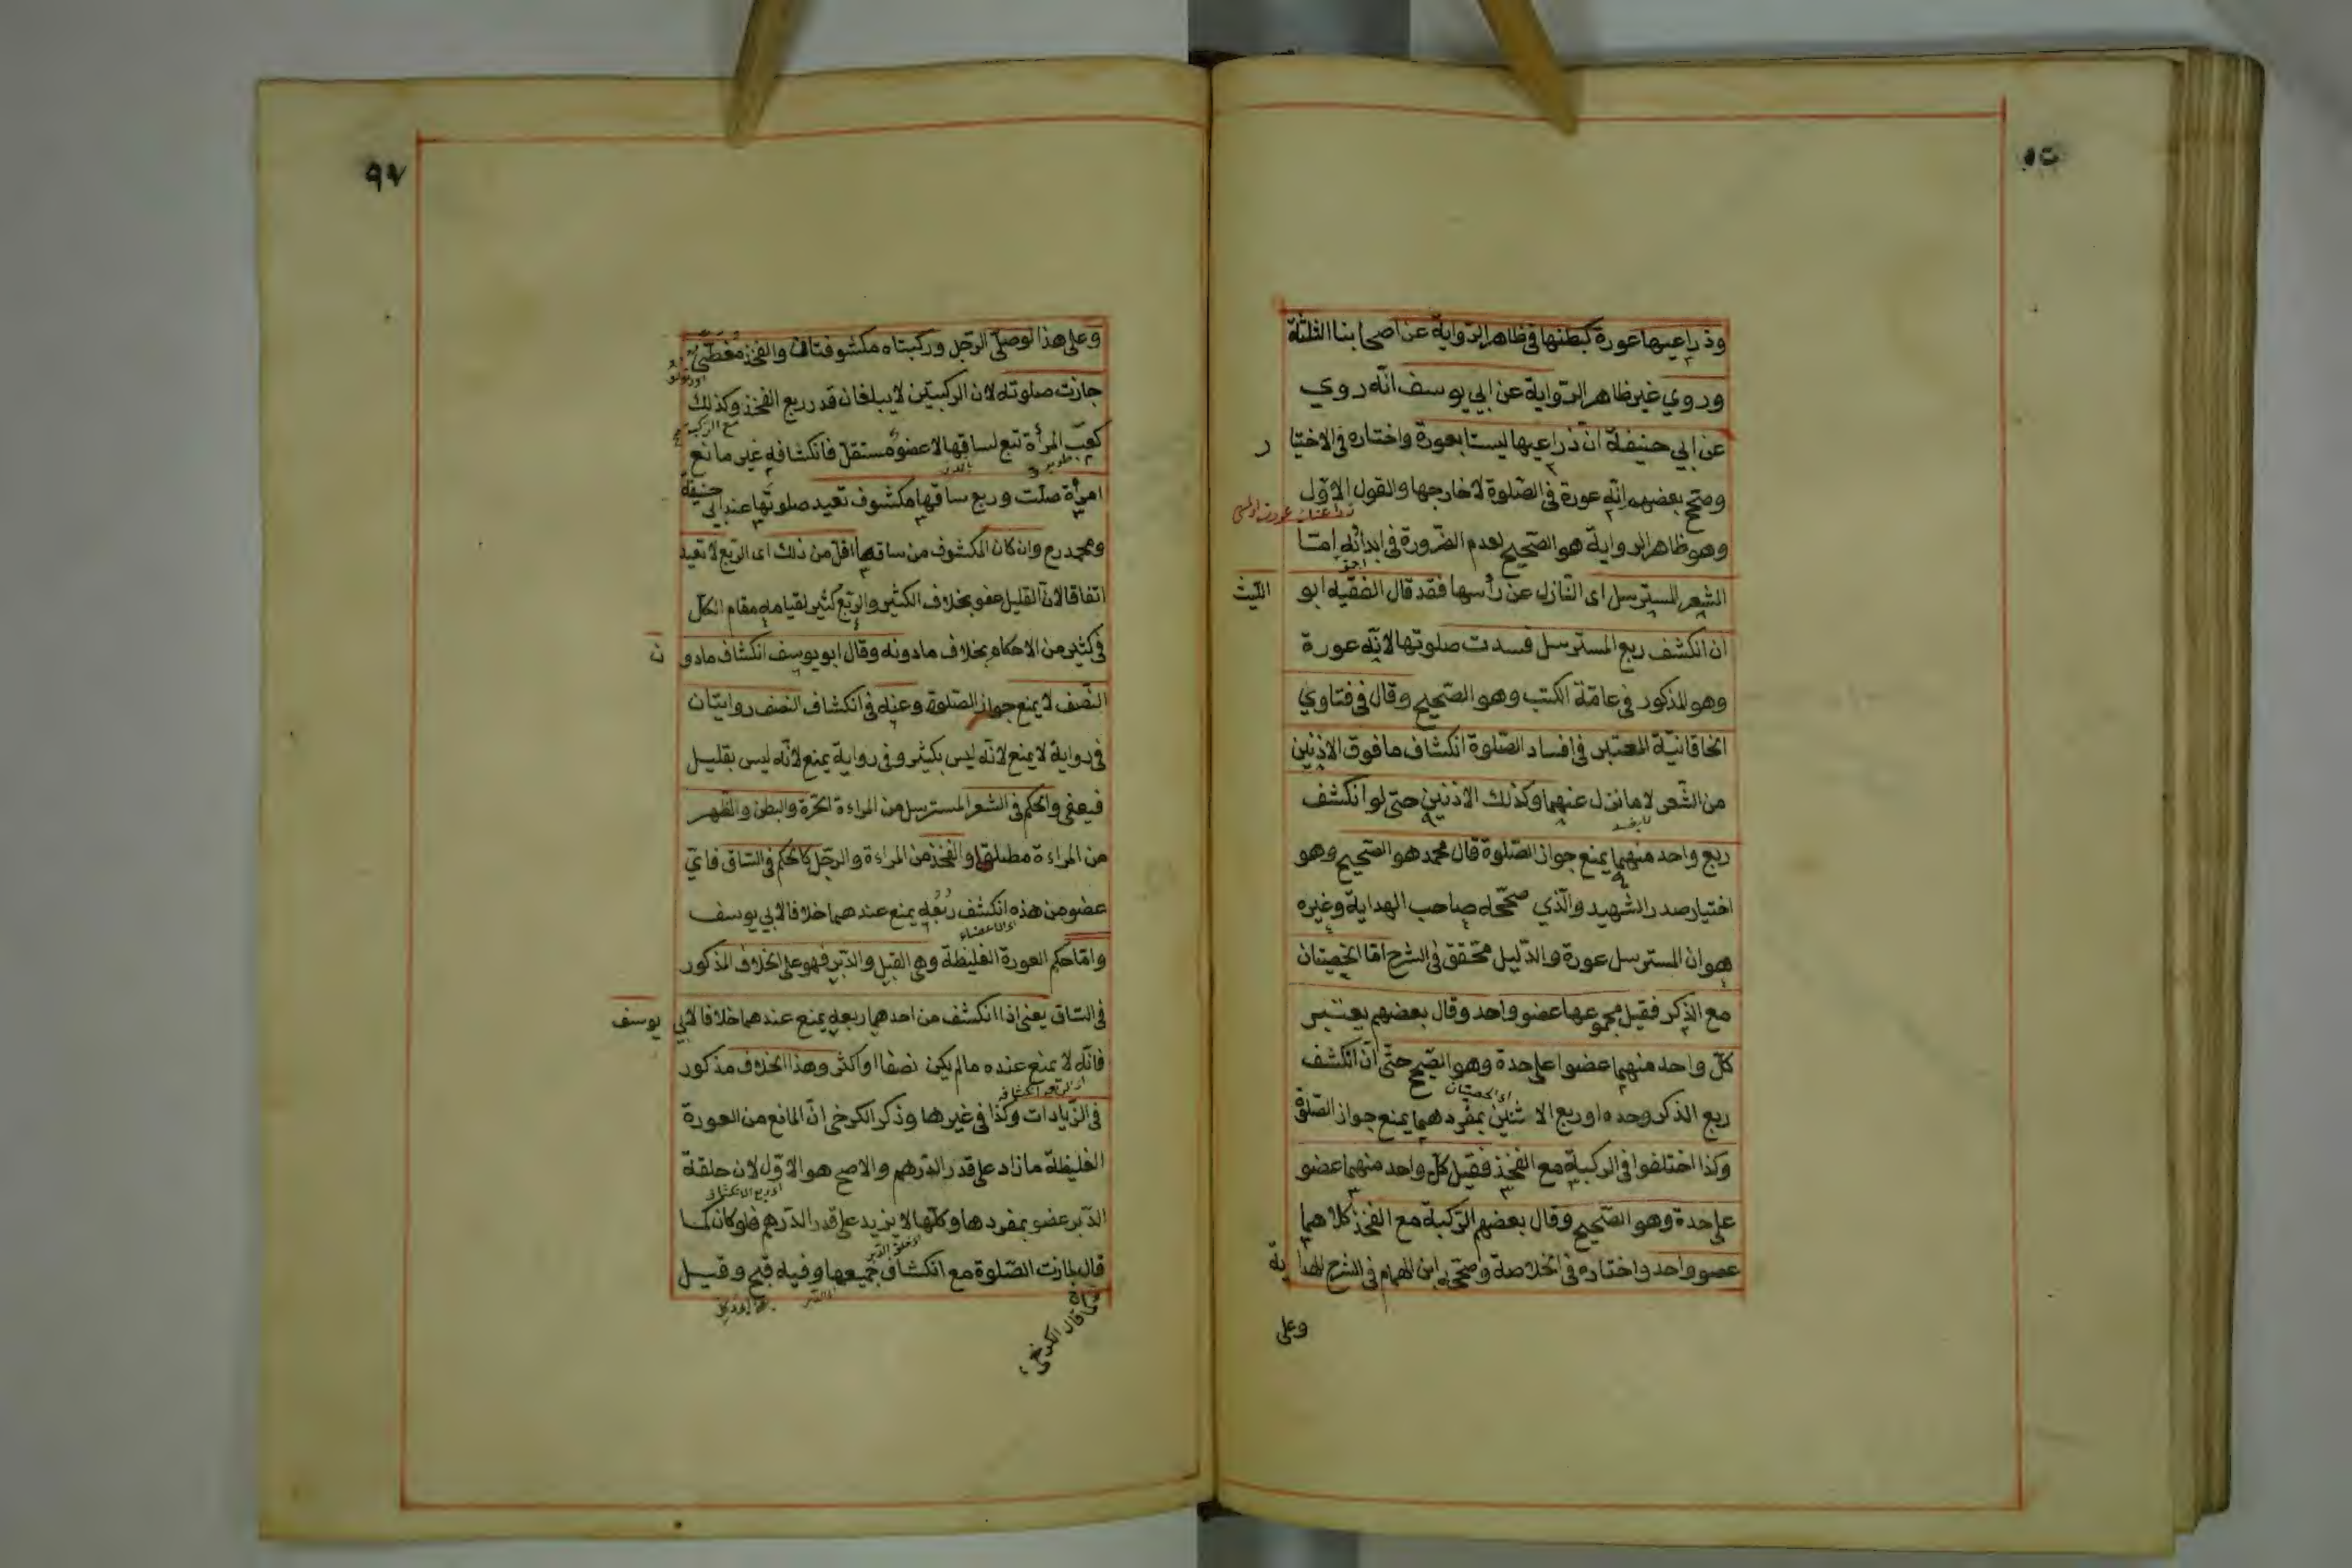 وذراعيها عورة كبطنها في ظاهر الرواية عن اصحابنا الثلثة
وروي غير ظاهر الرّواية عن ابي يوسف انّه روي
عن ابي حنيفة انّ ذراعيها ليستا بعورة واختاره في الاختيار
وصحّح بعضهم انّه عورة في الصّلوة لا خارجها والقول الاوّل
وهو ظاهر الرواية هو الصّحيح لعدم الضّرورة في ابدائه امّا
الشعر المسترسل اى النّازل عن رأسها فقد قال الفقيه ابو الليث
ان انكشف ربع المسترسل فسدت صلوتها لانّه عورة
وهو المذكور في عامّة الكتب وهو الصّحيح وقال في فتاوي
الخاقانيّة المعتبر في افساد الصّلوة انكشاف ما فوق الاذنين
من الشّعر لا ما نزل عنهما وكذلك الاذنين حتّى لو انكشف
ربع واحد منهما يمنع جواز الصّلوة قال محمد هو الصّحيح وهو
اختيار صدر الشّهيد والّذي صحّحه صاحب الهداية وغيره
هو ان المسترسل عورة والدّليل محقق في الشرح امّا الخصيتان
مع الذكر فقيل مجموعها عضو واحد وقال بعضهم يعتبر
كلّ واحد منهما عضوا علىحدة وهو الصّحيح حتّى ان انكشف
اى الخصيتان
ربع الذكر وحده او ربع الاثنين بمفردهما يمنع جواز الصّلوة
وكذا اختلفوا في الركبة مع الفخذ فقيل كلّ واحد منهما عضو
علىحدة وهو الصّحيح وقال بعضهم الرّكبة مع الفخذ كلاهما
عضو واحد واختاره في الخلاصة وصحّحه ابن الهمام في الشرح الهداية
وعلى
٩٧
وعلى هذا لو صلّى الرّجل وركبتاه مكشوفتان والفخذ مغطّى
جازت صلوته لان الركبتين لا يبلغان قدر ربع الفخذ وكذلك
كعب المرأة تبع لساقها لا عضو مستقلّ فانكشافه غير مانع
امرأة صلّت وربع ساقها مكشوف تعيد صلوتها عند ابي حنيفة
ومحمد رح وان كان المكشوف من ساقها اقلّ من ذلك اى الرّبع لا تعيد
اتفاقا لانّ القليل عفو بخلاف الكثير والرّبع كثير لقيامه مقام الكلّ
في كثير من الاحكام بخلاف ما دونه وقال ابو يوسف انكشاف ما دون
النّصف لا يمنع جواز الصّلوة وعنه في انكشاف النصف روايتان
في رواية لا يمنع لانّه ليس بكثير وفي رواية يمنع لانّه ليس بقليل
فيعفى والحكم في الشعر المسترسل من المراءة الحرّة والبطن والظهر
من المراءة مطلقا والفخذ من المراءة والرّجل كالحكم في السّاق فايّ
عضو من هذه انكشف ربعه يمنع عندهما خلافا لابي يوسف
اى الاعضاء
وامّا حكم العورة الغليظة وهى القبل والدّبر فهو على الخلاف المذكور
في السّاق يعنى اذا انكشف من احدهما ربعه يمنع عندهما خلافا لابي يوسف
فانّه لا يمنع عنده ما لم يكن نصفا او اكثر وهذا الخلاف مذكور
في الزّيادات وكذا في غيرها وذكر الكرخى انّ المانع من العورة
الغليظة ما زاد على قدر الدّرهم والاصح هو الاوّل لان حلقة
الدّبر عضو بمفردها وكلّها لا يزيد على قدر الدّرهم فلو كان كما
قال لجازت الصّلوة مع انكشاف جميعها وفيه قبح وقيل
قال الكرخى